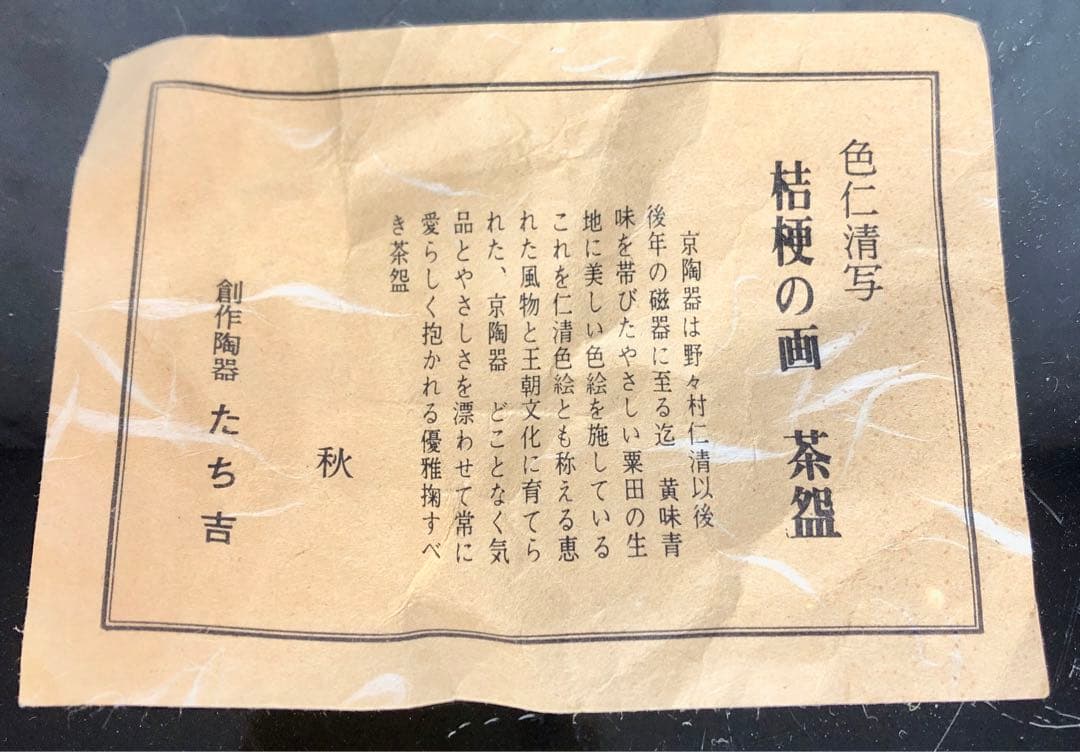 色仁清写
桔梗の画　茶盌
京陶器は野々村仁清以後
後年の磁器に至る迄　黄味青
味を帯びたやさしい粟田の生
地に美しい色絵を施している
これを仁清色絵とも称える恵
れた風物と王朝文化に育てら
れた、京陶器　どことなく気
品とやさしさを漂わせて常に
愛らしく抱かれる優雅掬すべ
き茶盌
秋
創作陶器　たち吉